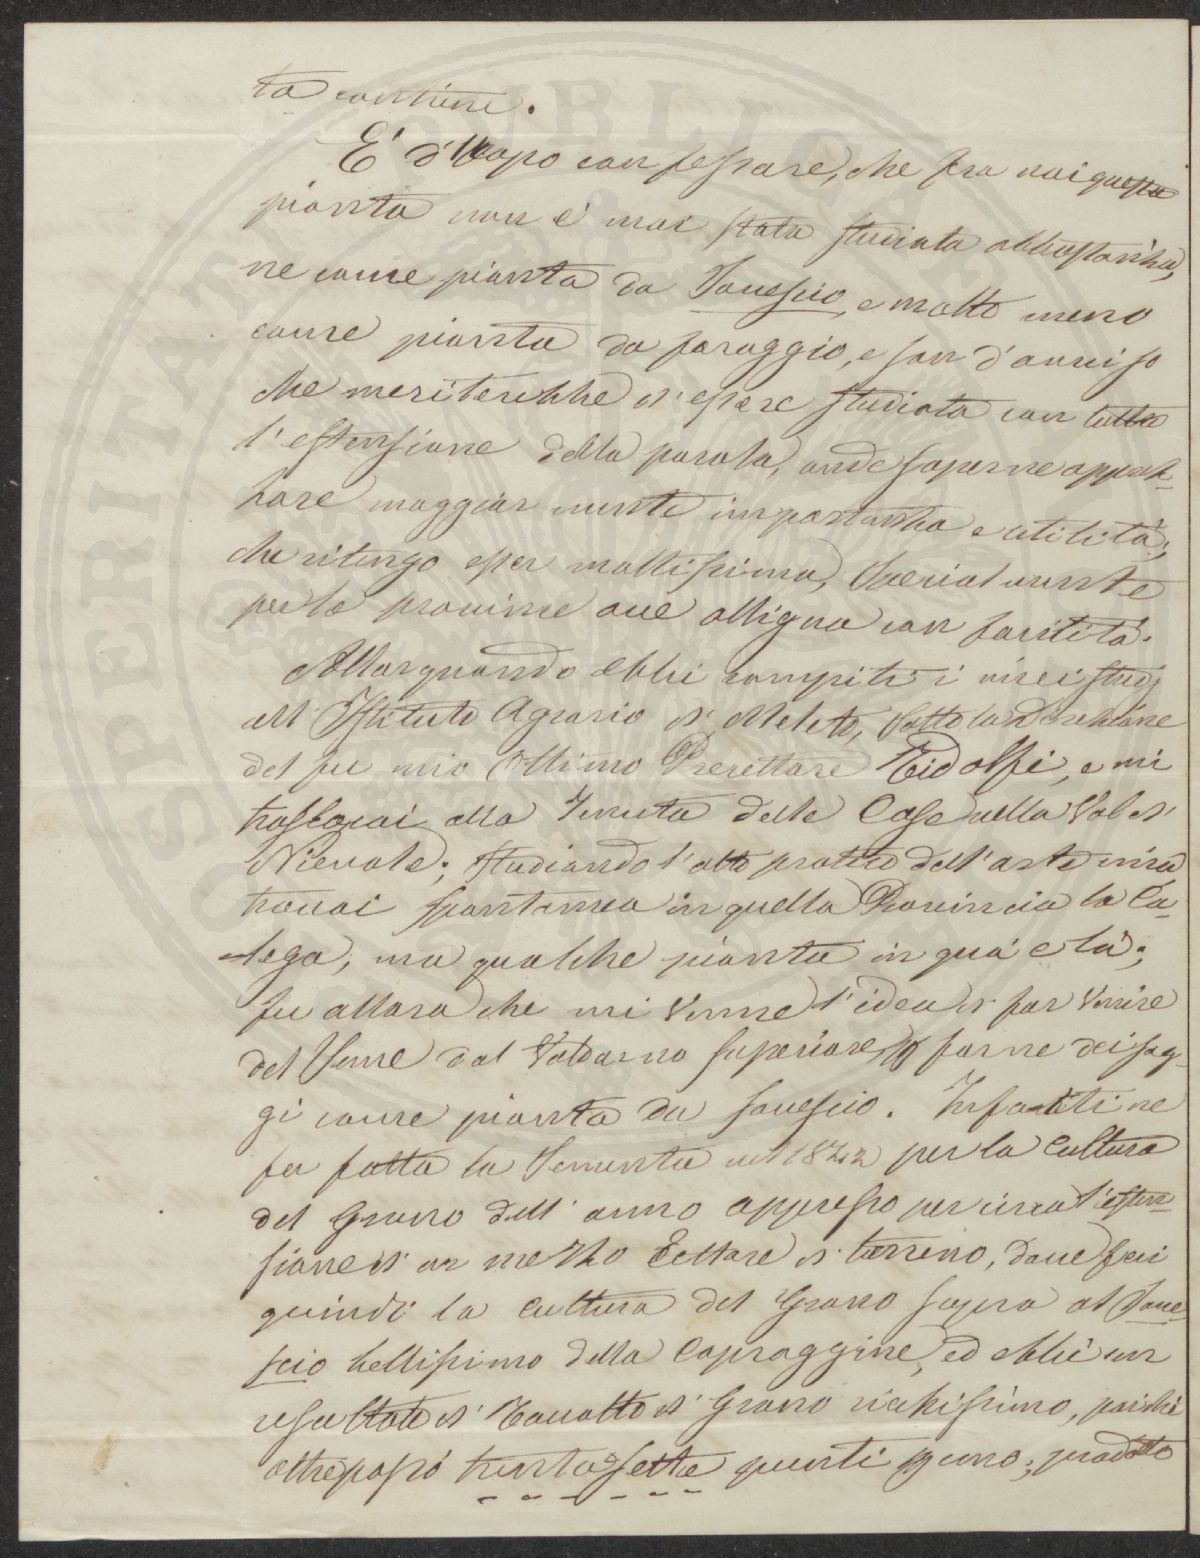 ta contiene.
E' d'Uopo confessare, che fra noi questa
pianta non è mai stata studiata abbastanza,
ne come pianta da Sovescio, e molto meno
come pianta da foraggio, e son d'avviso
che meriterebbe d'essere studiata con tutta
l'estensione della parola, onde saperne apprez-
zare maggiormente importanza e utilità;
che ritengo esser moltissima, specialmente
per le provincie ove alligna con facilità.
Allorquando ebbi compiti i miei studj
all'Istituto Agrario di Meleto, sotto la Direzione
del fu mio Ottimo Precettore Ridolfi, e mi
traslocai alla Tenuta delle Case nella Val di
Nievole; studiando l'atto pratico dell'arte mia
trovai spontanea in quella Provincia la Ca-
lega, ma qualche pianta in quà e là;
fu allora che mi venne l'idea di far venire
del Seme dal Valdarno superiore p farne dei sag-
gi come pianta da sovescio. Infatti ne
fu fatta la Sementa nel 1842 per la Cultura
del Grano dell'anno appresso per circa l'esten-
sione di un mezzo Ettare di terreno, dove feci
quindi la cultura del Grano sopra al Sove-
scio bellissimo della Capraggine, ed ebbi un
resultato di Raccolto di Grano ricchissimo, poichè
oltrepassò trentasette quinti p uno; prodotto